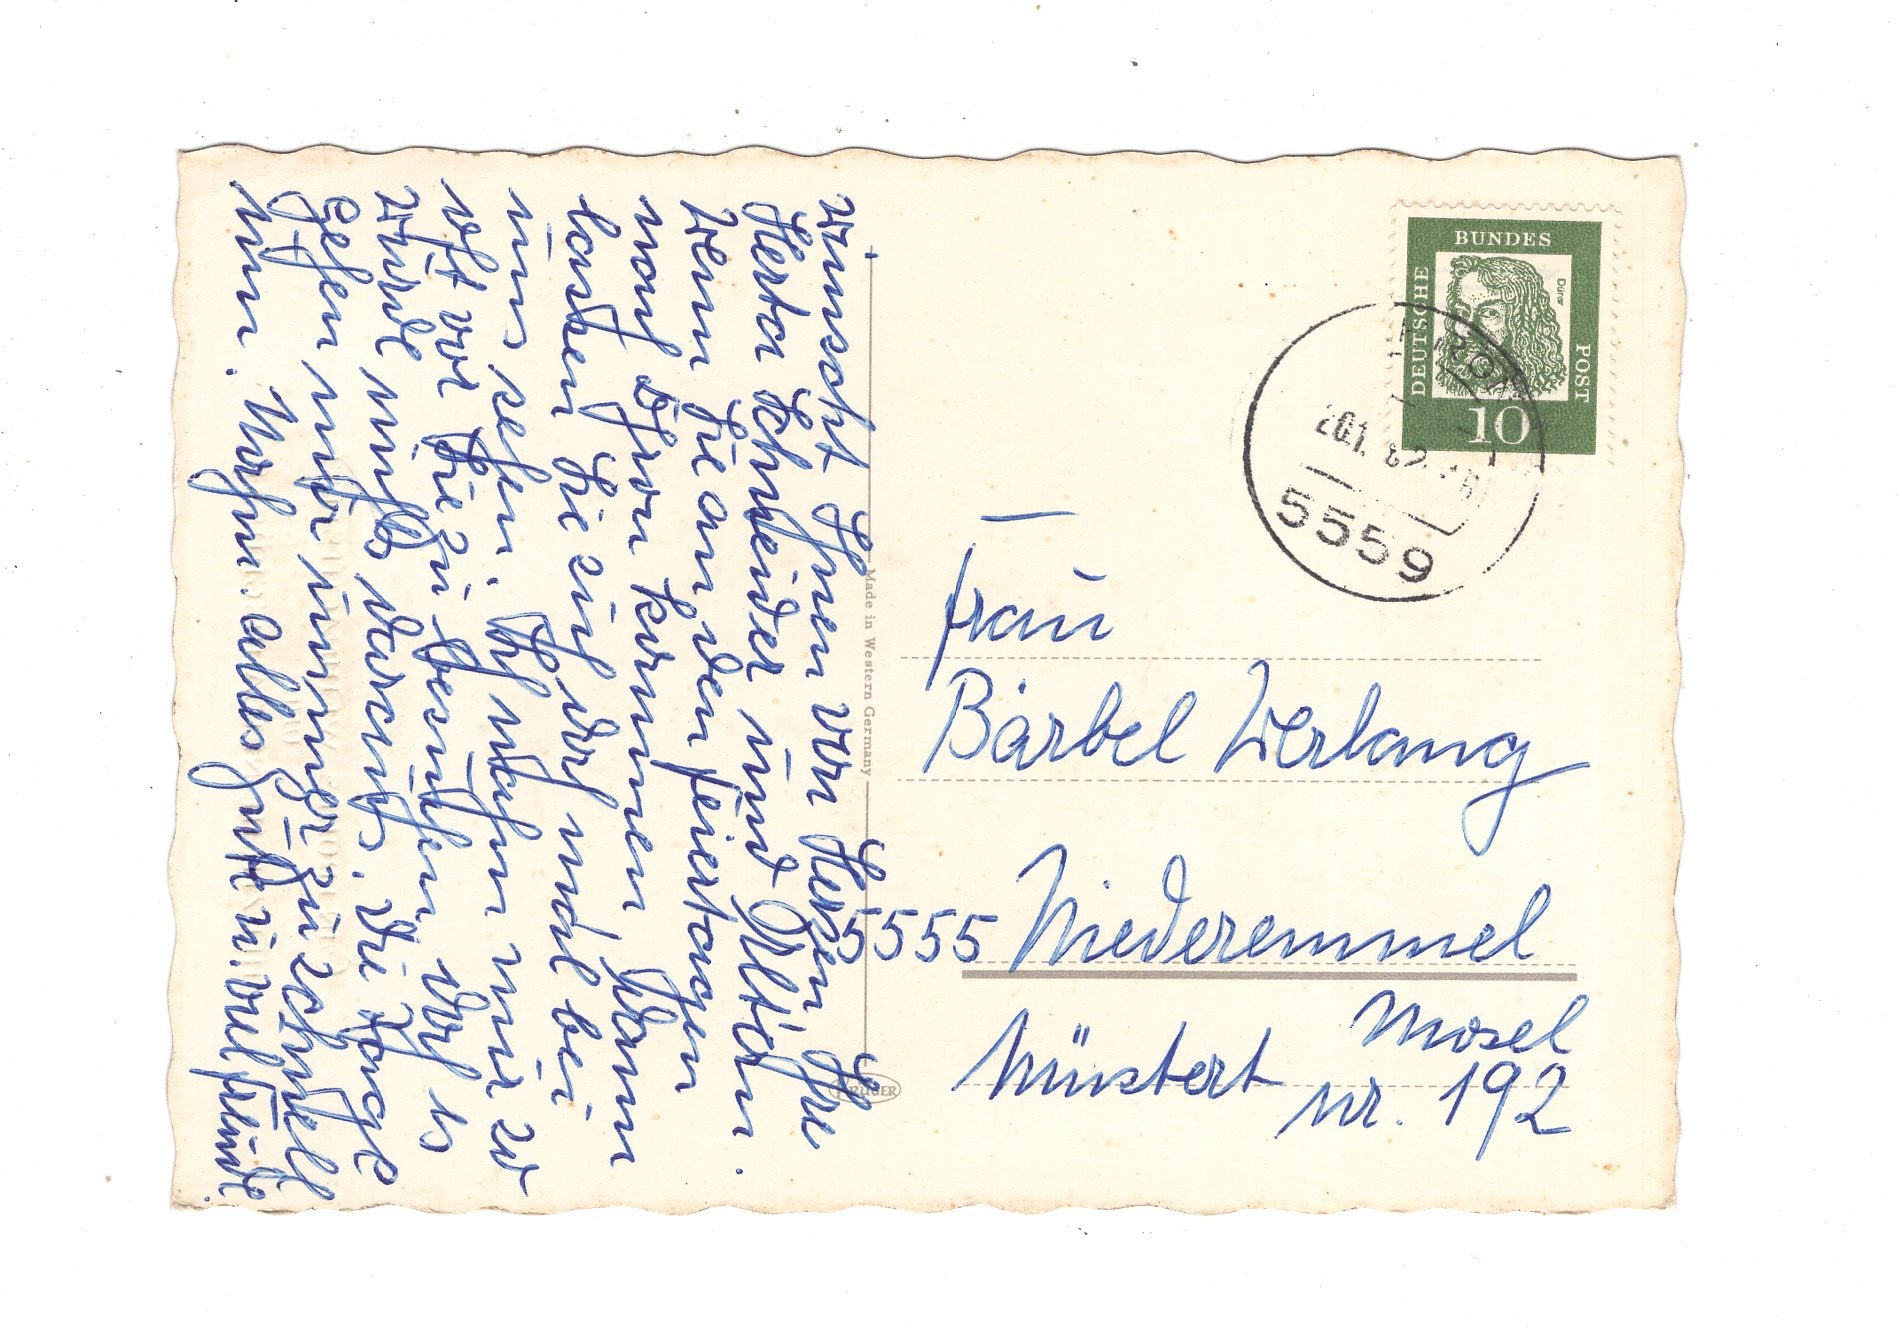 wünscht Ihnen von Herzen Ihre
Herta Schneider und
Wenn Sie an den Feiertagen
nach Thron kommen, dann
lassen Sie sich doch mal bei
uns sehen. Ich nahm mir zw
oft vor Sie zu besuchen, doch es
wurde nichts daraus. Die Tage
gehen nur immer zu schnell
rum. Nochm. alles Gute u. viel Freude.
Made in Western Germany
KRÜGER
DEUTSCHE
BUNDES
POST
Dürer
10
5559
Frau
Bärbel Werlang
5555 Niederemmel
Mosel
Müstert
Nr. 192